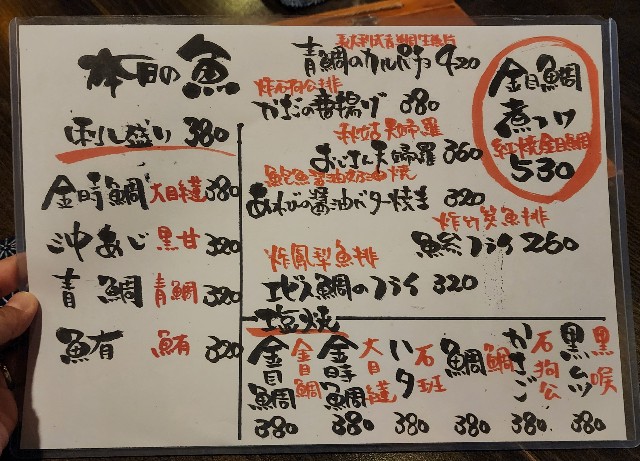 本日の魚
刺し盛り 380
金時鯛 大目鏈 380
沖あじ 黒甘 320
青鯛 青鯛 320
鮪 鮪 320
青鯛のカルパチョ 420
炸石狗公排
かさごの唐揚げ 380
秋姑天婦羅
おじさん天婦羅 360
鮑魚醤油奶油焼
あわびの醤油バター焼き 320
炸竹筴魚排
鯵フライ 260
炸鳳梨魚排
エビス鯛のフライ 320
金目鯛
煮つけ
紅燒金目鯛
530
塩焼
金目鯛 金目鯛 380
金時鯛 大目鏈 380
ハタ 石斑 380
鯛 鯛 380
かさご 石狗公 380
黒ムツ 黒喉 380